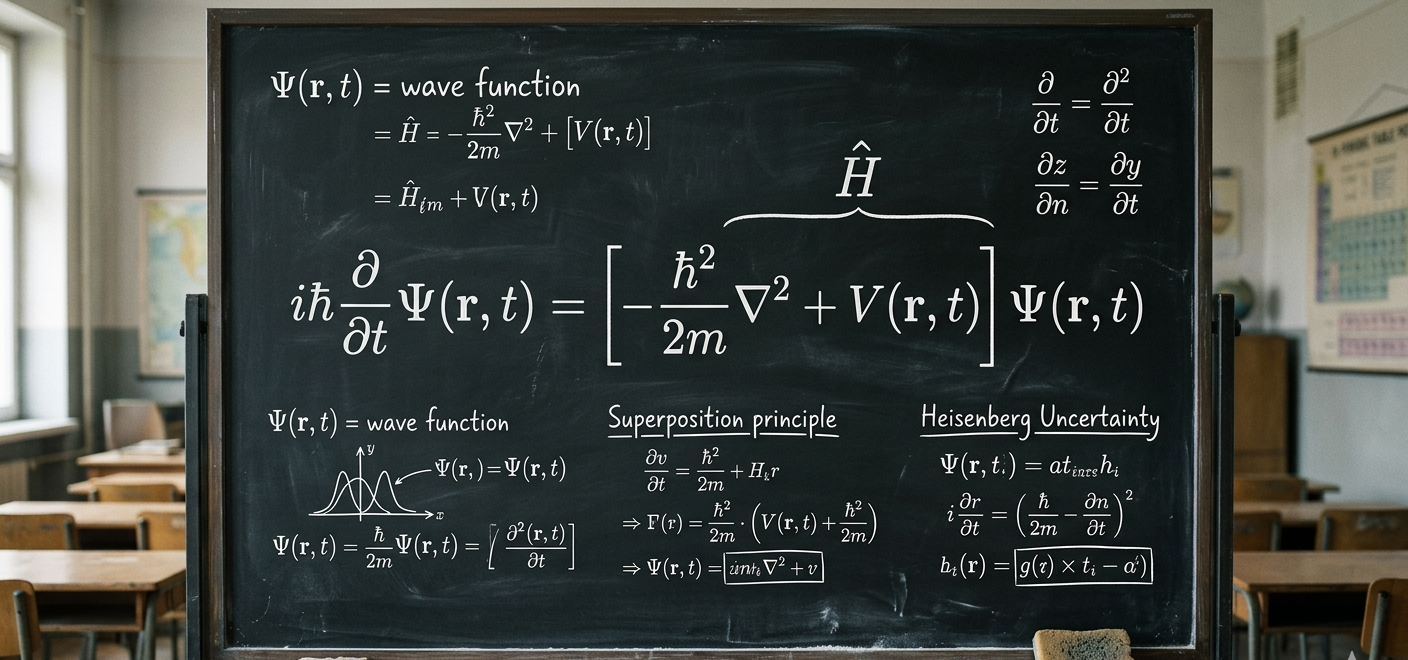 Ψ(r, t) = wave function
= Ĥ = −ħ²/2m ∇² + [V(r, t)]
= Ĥ + V(r, t)
∂/∂t = ∂²/∂t
∂z/∂n = ∂y/∂t
Ĥ
iħ ∂/∂t Ψ(r, t) = [−ħ²/2m ∇² + V(r, t)] Ψ(r, t)
Ψ(r, t) = wave function
y
Ψ(r,)=Ψ(r, t)
x
Ψ(r, t) = ħ/2m Ψ(r, t) = [∂²(r, t)/∂t]
Superposition principle
∂v/∂t = ħ²/2m + H r
⇒ F(r) = ħ²/2m · (V(r, t) + ħ²/2m)
⇒ Ψ(r, t) = ∇² + v
Heisenberg Uncertainty
Ψ(r, t.) = at hᵢ
i ∂r/∂t = (ħ/2m − ∂n/∂t)²
(r) = × tᵢ −